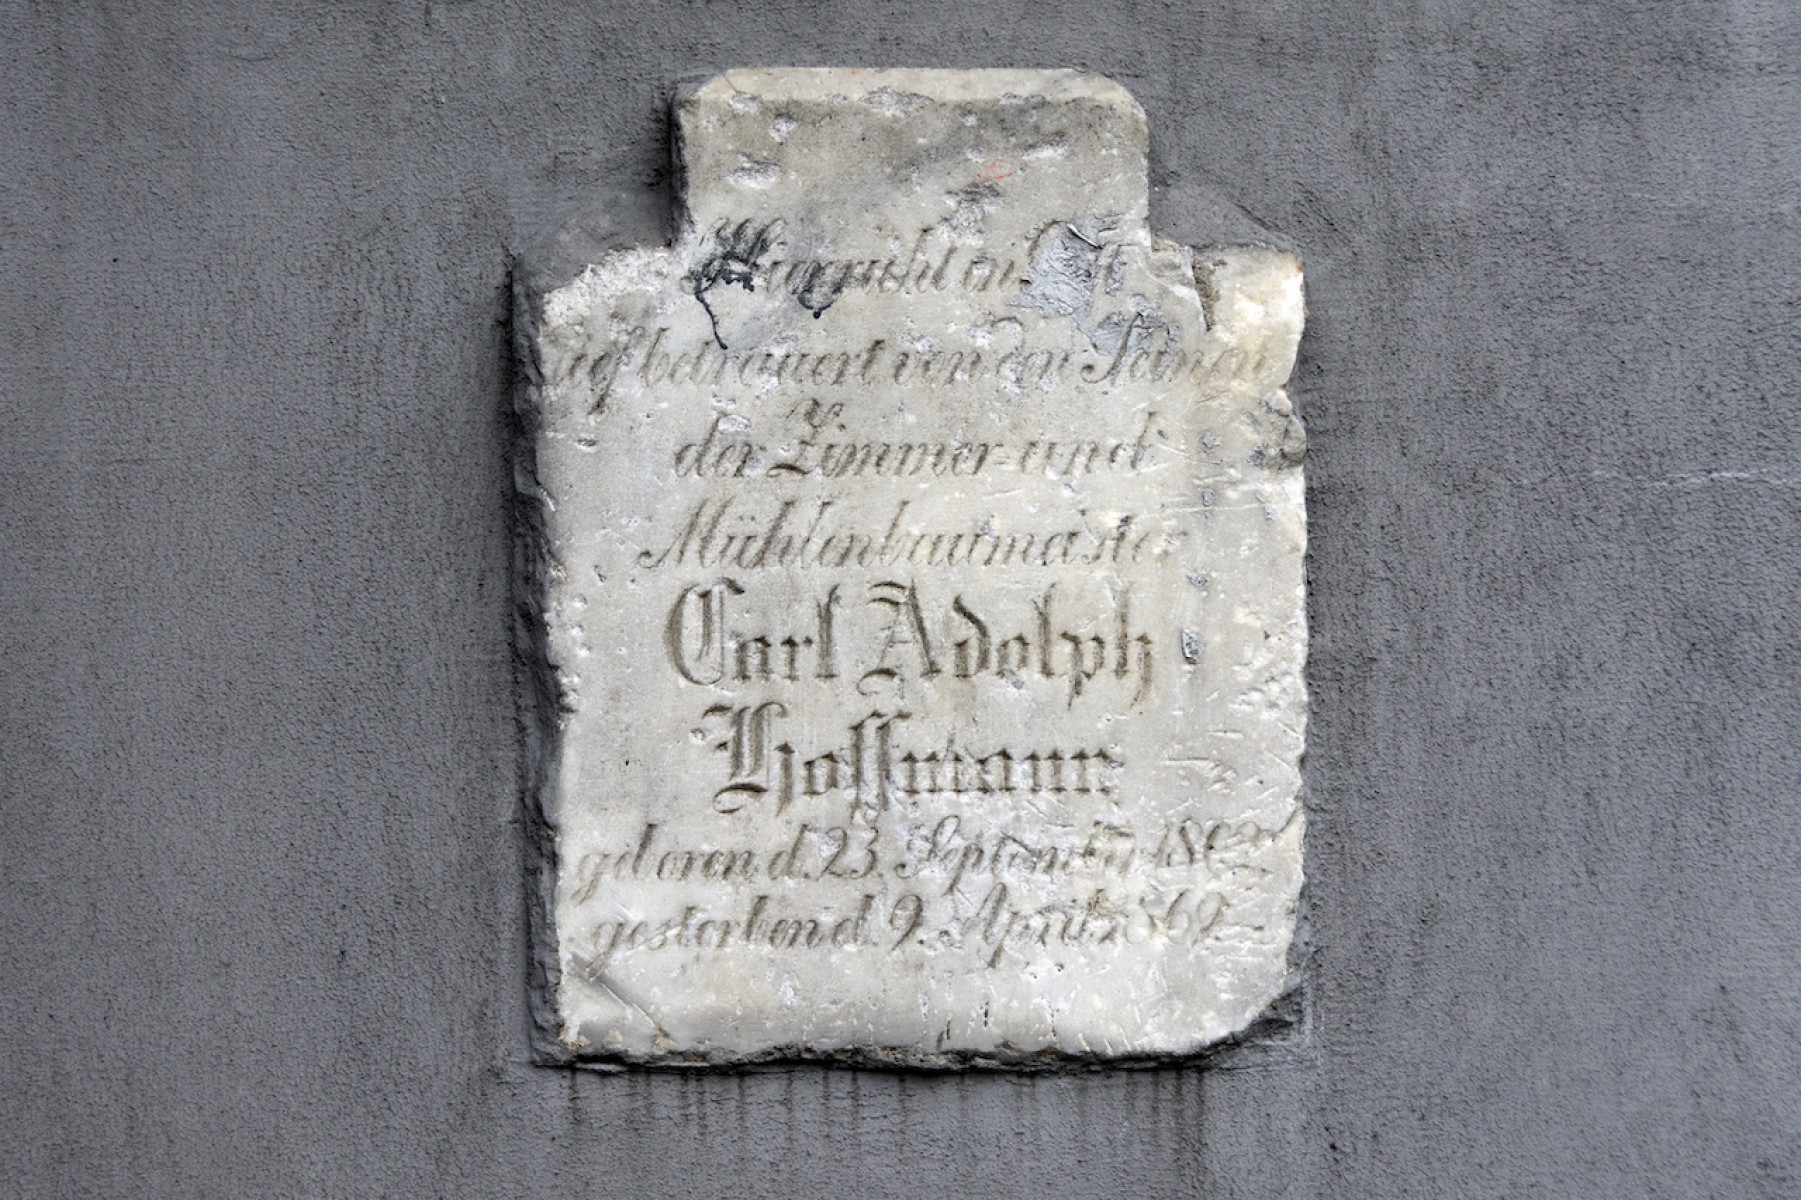 Hier ruht in Gott
tief betrauert von den Seinen
der Zimmer- und
Mühlenbaumeister
Carl Adolph
Hoffmann
geboren d. 23. September 1802
gestorben d. 9. April 1869